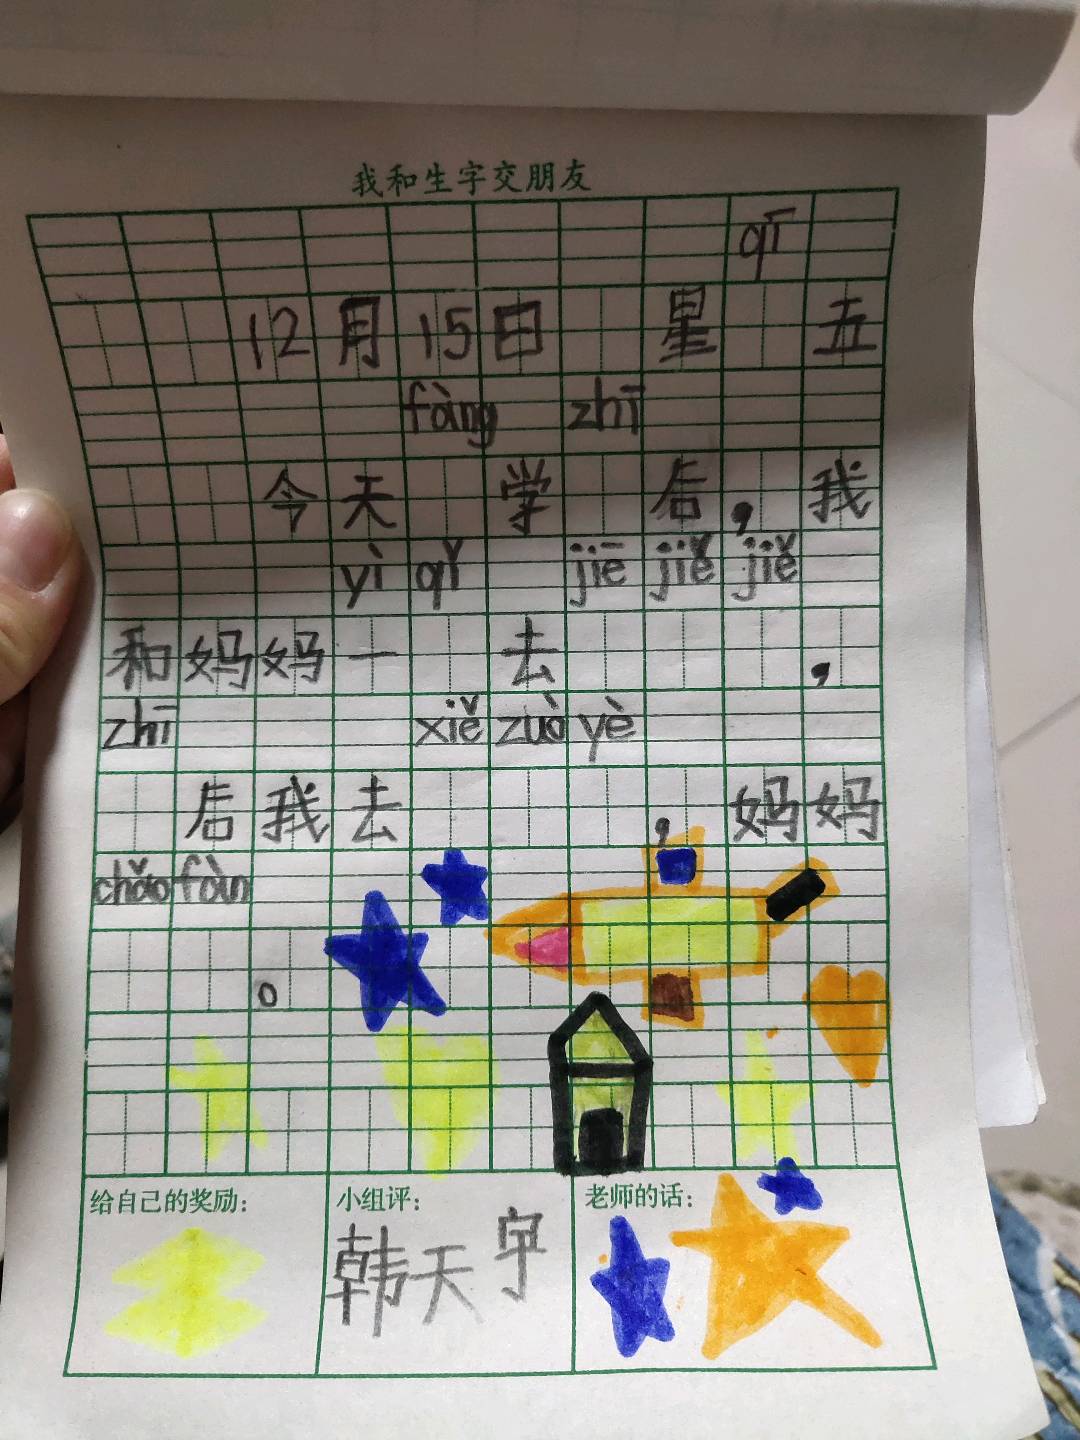 我和生字交朋友
qī
12月15日 星 五
fàng zhī
今天 学 后，我
yì qǐ jiē jiě jiě
和妈妈一 去 ，
zhī xiě zuò yè
后我去 ，妈妈
chǎo fàn
。
给自己的奖励：
小组评：
老师的话：
韩天宇